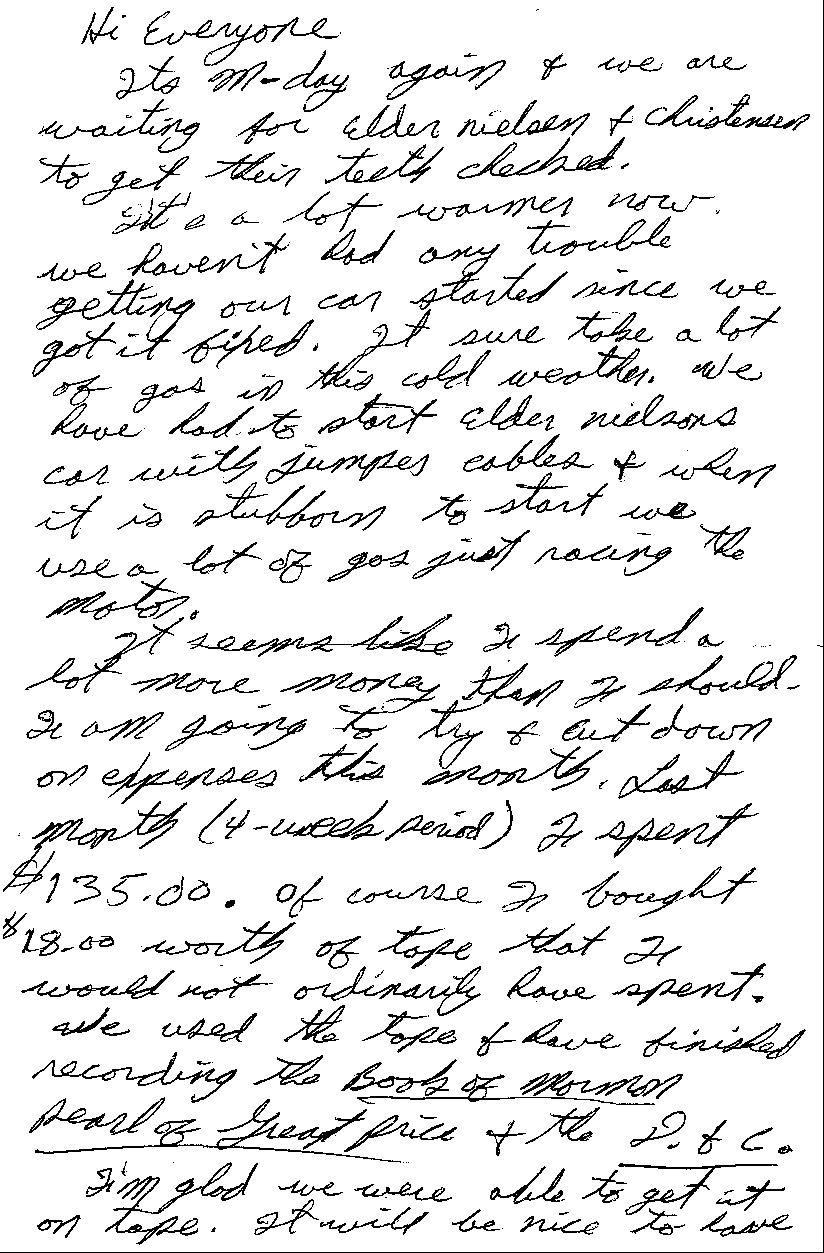 Hi Everyone
Its M-day again & we are
waiting for Elder Nielsen & Christensen
to get their teeth checked.
It's a lot warmer now.
we haven't had any trouble
getting our car started since we
got it fixed. It sure take a lot
of gas in this cold weather. We
have had to start Elder Nielsons
car with jumper cables & when
it is stubborn to start we
use a lot of gas just racing the
motor.
It seems like I spend a
lot more money than I should.
I am going to try & cut down
on expenses this month. Last
month (4-week period) I spent
$135.00. Of course I bought
$18.00 worth of tape that I
would not ordinarily have spent.
We used the tape & have finished
recording the Book of Mormon
Pearl of Great Price & the D. & C.
I'm glad we were able to get it
on tape. It will be nice to have